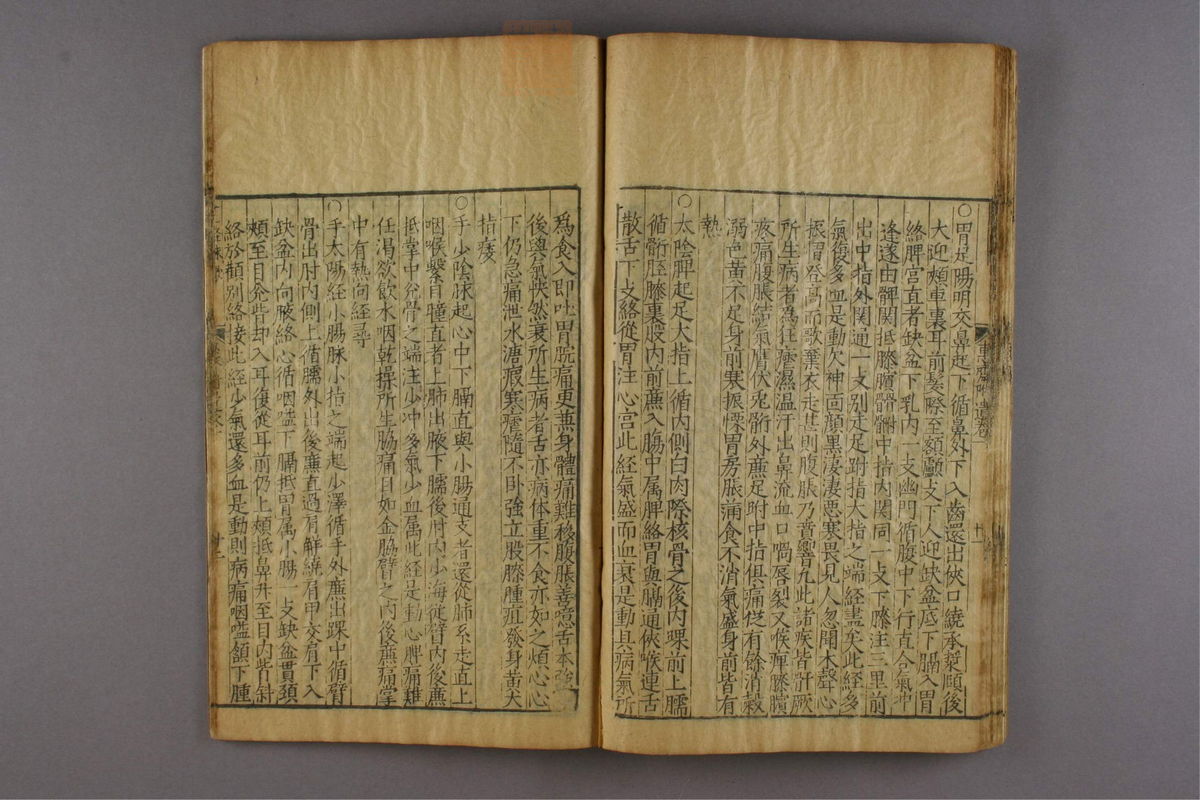 〇胃足陽明交鼻起下循鼻外下入齒還出俠口繞承漿頤後
大迎頰車裏耳前髮際至額顱支下人迎缺盆底下膈入胃
絡脾宮直者缺盆下乳內一支幽門循腹中下行直合氣冲
逢遂由髀関抵膝臏䯒跗中指內関同一支下膝注三里前
出中指外関通一支別走足跗指大指之端経盡矣此経多
氣復多血是動欠神面顔黒凄凄悪寒畏見人忽聞木聲心
振㥜登高而歌棄衣走甚則腹脹乃賁響凡此諸疾皆骭厥
所生病者為狂瘧濕温汗出鼻流血口喎唇裂又喉痺膝臏
疼痛腹脹結氣膺伏兎骭外㢘足跗中指俱痛徔有餘消穀
溺色黃不足身前寒振慄胃房脹滿食不消氣盛身前皆有
熱
太陰脾起足大指上循內側白肉際核骨之後內踝前上臑
循䯒脛膝裏股內前㢘入腹中属脾絡胃與膈通俠喉連舌
散舌下支絡從胃注心宮此経氣盛而血衰是動其病氣所
為食入即吐胃脘痛更兼身體痛難移腹脹善噫舌本強
後與氣快然衰所生病者舌亦病体重不食亦如之煩心心
下仍急痛泄水溏瘕寒瘧隨不卧強立股膝腫疽發身黃大
指痿
〇手少陰脉起心中下膈直與小腸通支者還從肺系走直上
咽喉繫目瞳直者上肺出腋下臑後肘內少海従臂內後㢘
抵掌中兌骨之端注少冲多氣少血属此経是動心脾痛難
任渴欲飲水咽乾操所生脇痛目如金脇臂之內後㢘痛掌
中有熱向経尋
〇手太陽経小腸脉小指之端起少澤循手外㢘出踝中循臂
骨出肘內側上循臑外出後㢘直過肩觧繞肩甲交肩下入
缺盆內向腋絡心循咽嗌下膈抵胃属小腸一支缺盆貫頸
頰至目兌眥却入耳復從耳前仍上頰抵鼻升至目內眥斜
絡於顴別絡接此経少氣還多血是動則病痛咽嗌頷下腫